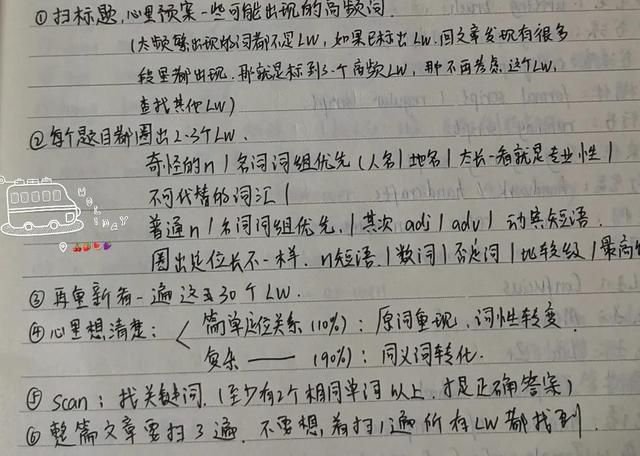 ①扫标题,心里预案一些可能出现的高频词.
(太频繁出现的词都不是LW,如果已标出LW.回文章发现有很多
段里都出现.那就是标到了一个高频LW,那不再考虑这个LW,
查找其他LW)
②每个题目都圈出2-3个LW.
奇怪的n|名词词组优先(人名|地名|太长一看就是专业性|
不可代替的词汇|
普通n|名词词组优先.|其次adj|adv|动宾短语.
圈出定位长不一样.n短语.|数词|否定词|比较级|最高
③再重新看一遍这30个LW.
④心里想清楚:<简单定位关系(10%):原词重现、词性转变.
复杂——(90%):同义词转化.
⑤scan:找关键词.(至少有2个相同单词以上.才是正确答案)
⑥整篇文章要扫3遍.不要想,着扫1遍所有LW都找到.